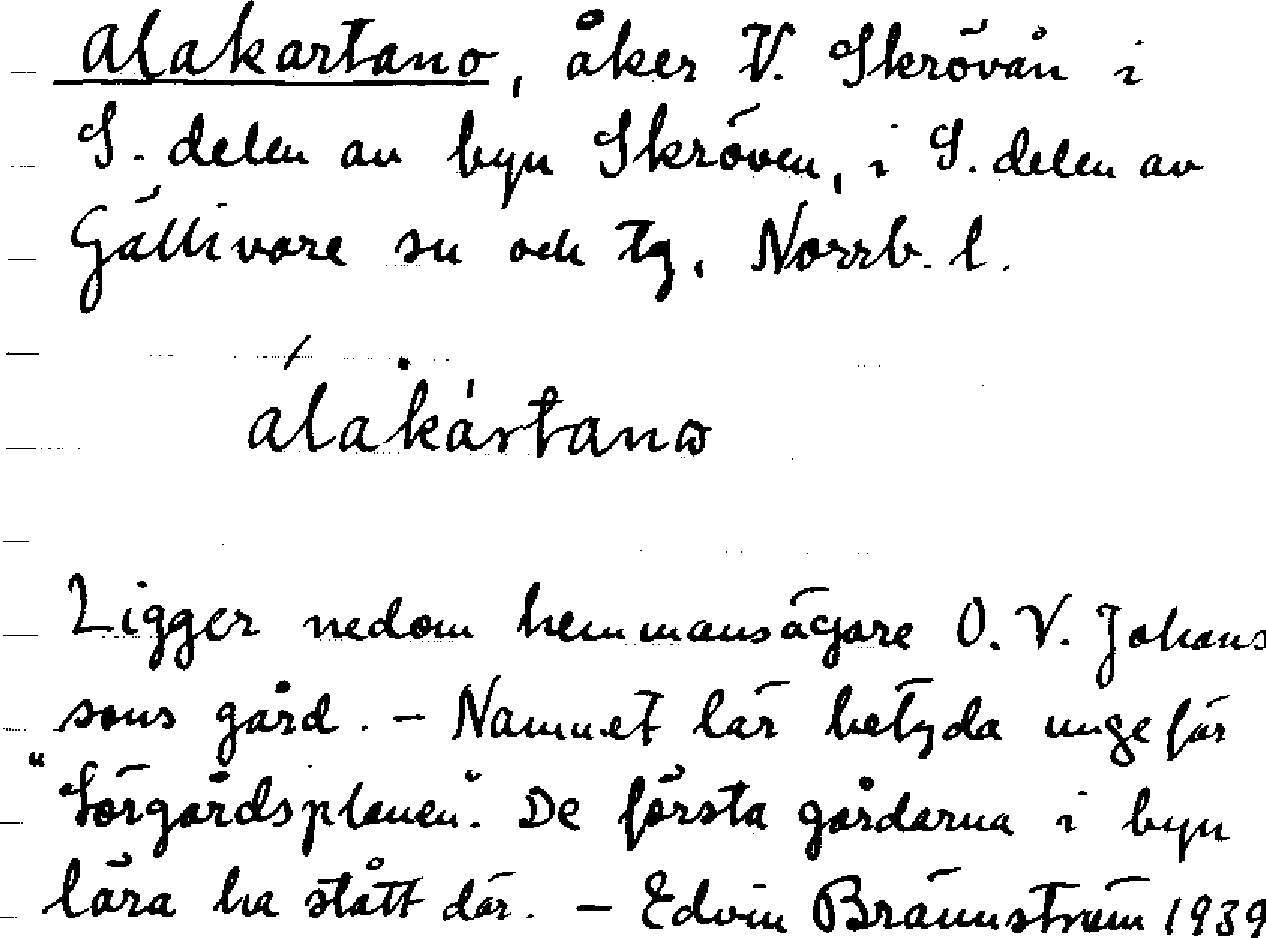 Alakartano, åker V. Skrövån i
S. delen av byn Skröven, i S. delen av
Gällivare sn och tg, Norrb. l.
álakàrtano
Ligger nedom hemmansägare O. V. Johans
sons gård. – Namnet lär betyda ungefär
"Sörgårdsplanen". De första gårdarna i byn
lära ha stått där. – Edvin Brännström 1939